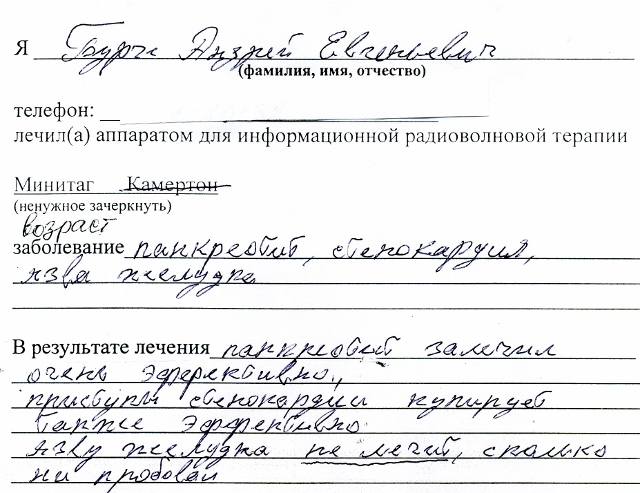 Я Бурч Андрей Евгеньевич
(фамилия, имя, отчество)
телефон:
лечил(а) аппаратом для информационной радиоволновой терапии
Минитаг Камертон
(ненужное зачеркнуть)
возраст
заболевание панкреатит, стенокардия,
язва желудка
В результате лечения панкреатит залечил
очень эффективно,
приступы стенокардии купирует
также эффективно
язву желудка не лечит, сколько
ни пробовал